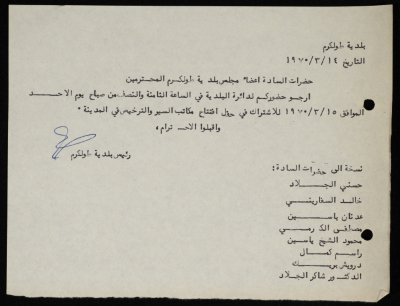 بلدية طولكرم
التاريخ ١٩٧٠/٣/١٤
حضرات السادة اعضاء مجلس بلدية طولكرم المحترمين
ارجو حضوركم لدائرة البلدية في الساعة الثامنة والنصف من صباح يوم الاحد
الموافق ١٩٧٠/٣/١٥ للاشتراك في حفل افتتاح مكاتب السير والترخيص في المدينة .
واقبلوا الاحترام ،
رئيس بلدية طولكرم
نسخة الى حضرات السادة :
حسني الجلاد
خالد السفاريني
عدنان ياسين
مصطفى الكرمي
محمود الشيخ ياسين
راسم كمال
درويش بريك
الدكتور شاكر الجلاد